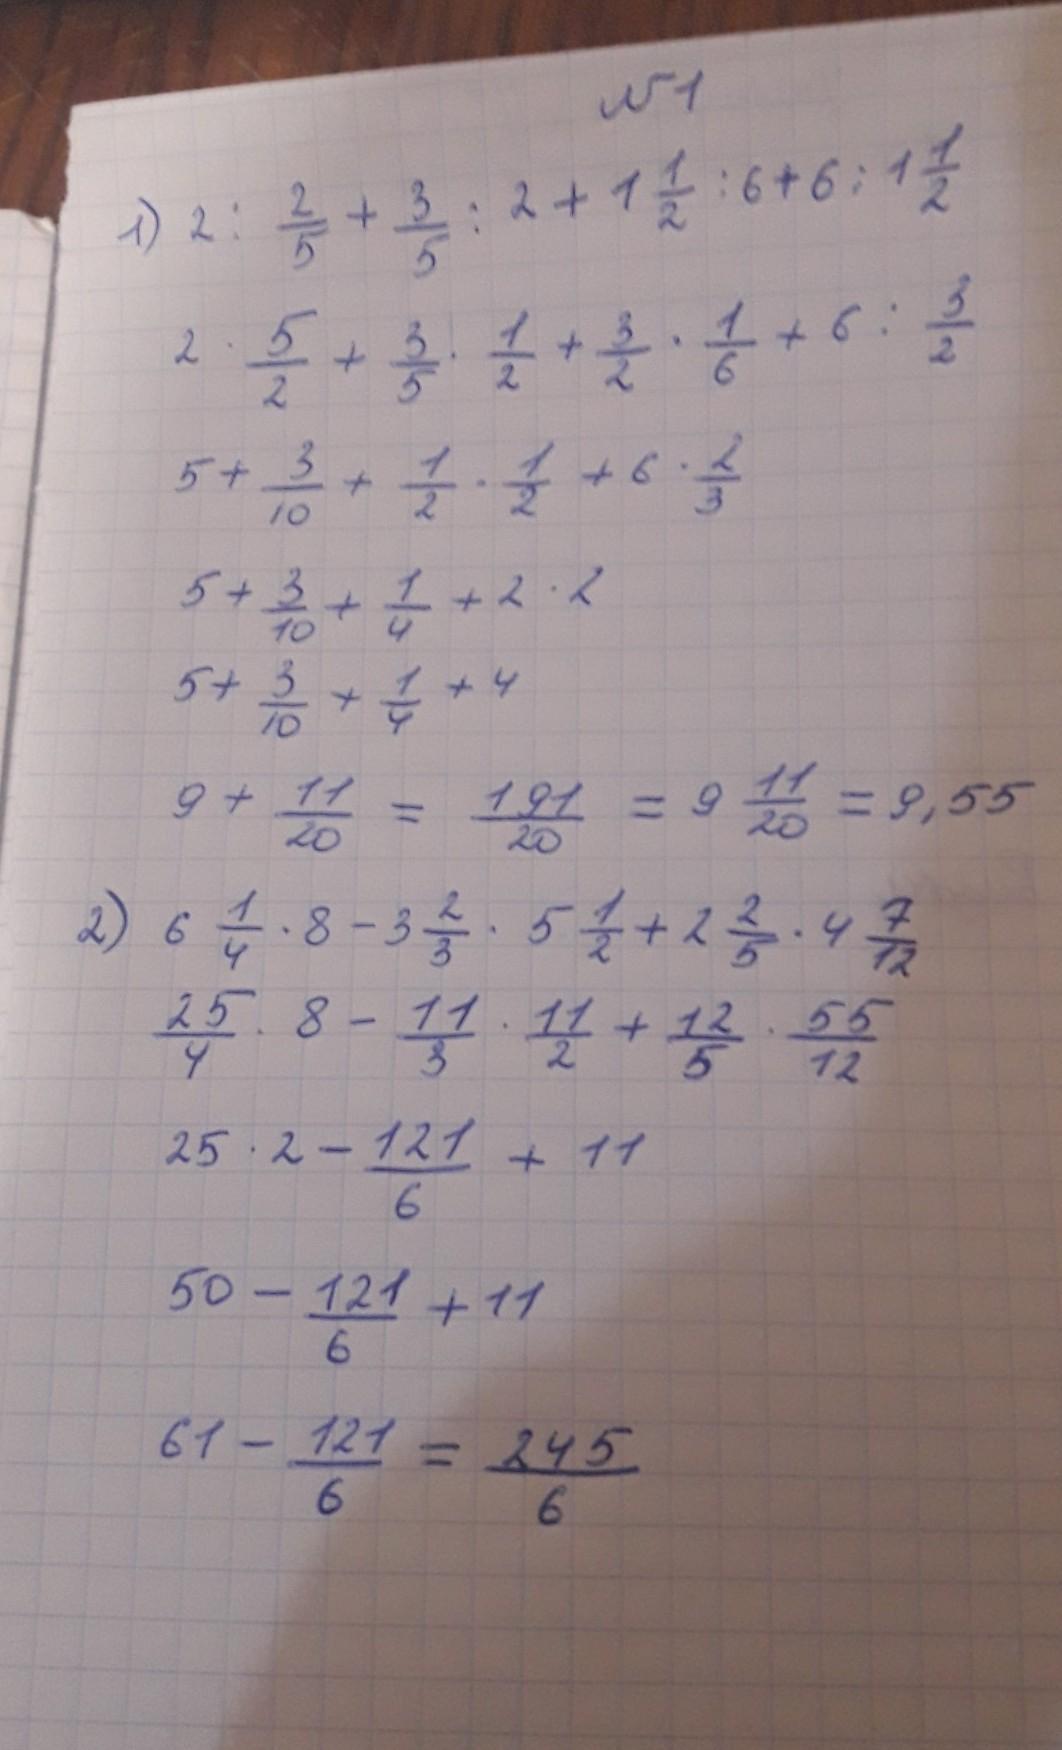 №1
1) 2 : 2/5 + 3/5 : 2 + 1 1/2 : 6 + 6 : 1 1/2
2 · 5/2 + 3/5 · 1/2 + 3/2 · 1/6 + 6 : 3/2
5 + 3/10 + 1/2 · 1/2 + 6 · 2/3
5 + 3/10 + 1/4 + 2 · 2
5 + 3/10 + 1/4 + 4
9 + 11/20 = 191/20 = 9 11/20 = 9,55
2) 6 1/4 · 8 - 3 2/3 · 5 1/2 + 2 2/5 · 4 7/12
25/4 · 8 - 11/3 · 11/2 + 12/5 · 55/12
25 · 2 - 121/6 + 11
50 - 121/6 + 11
61 - 121/6 = 245/6